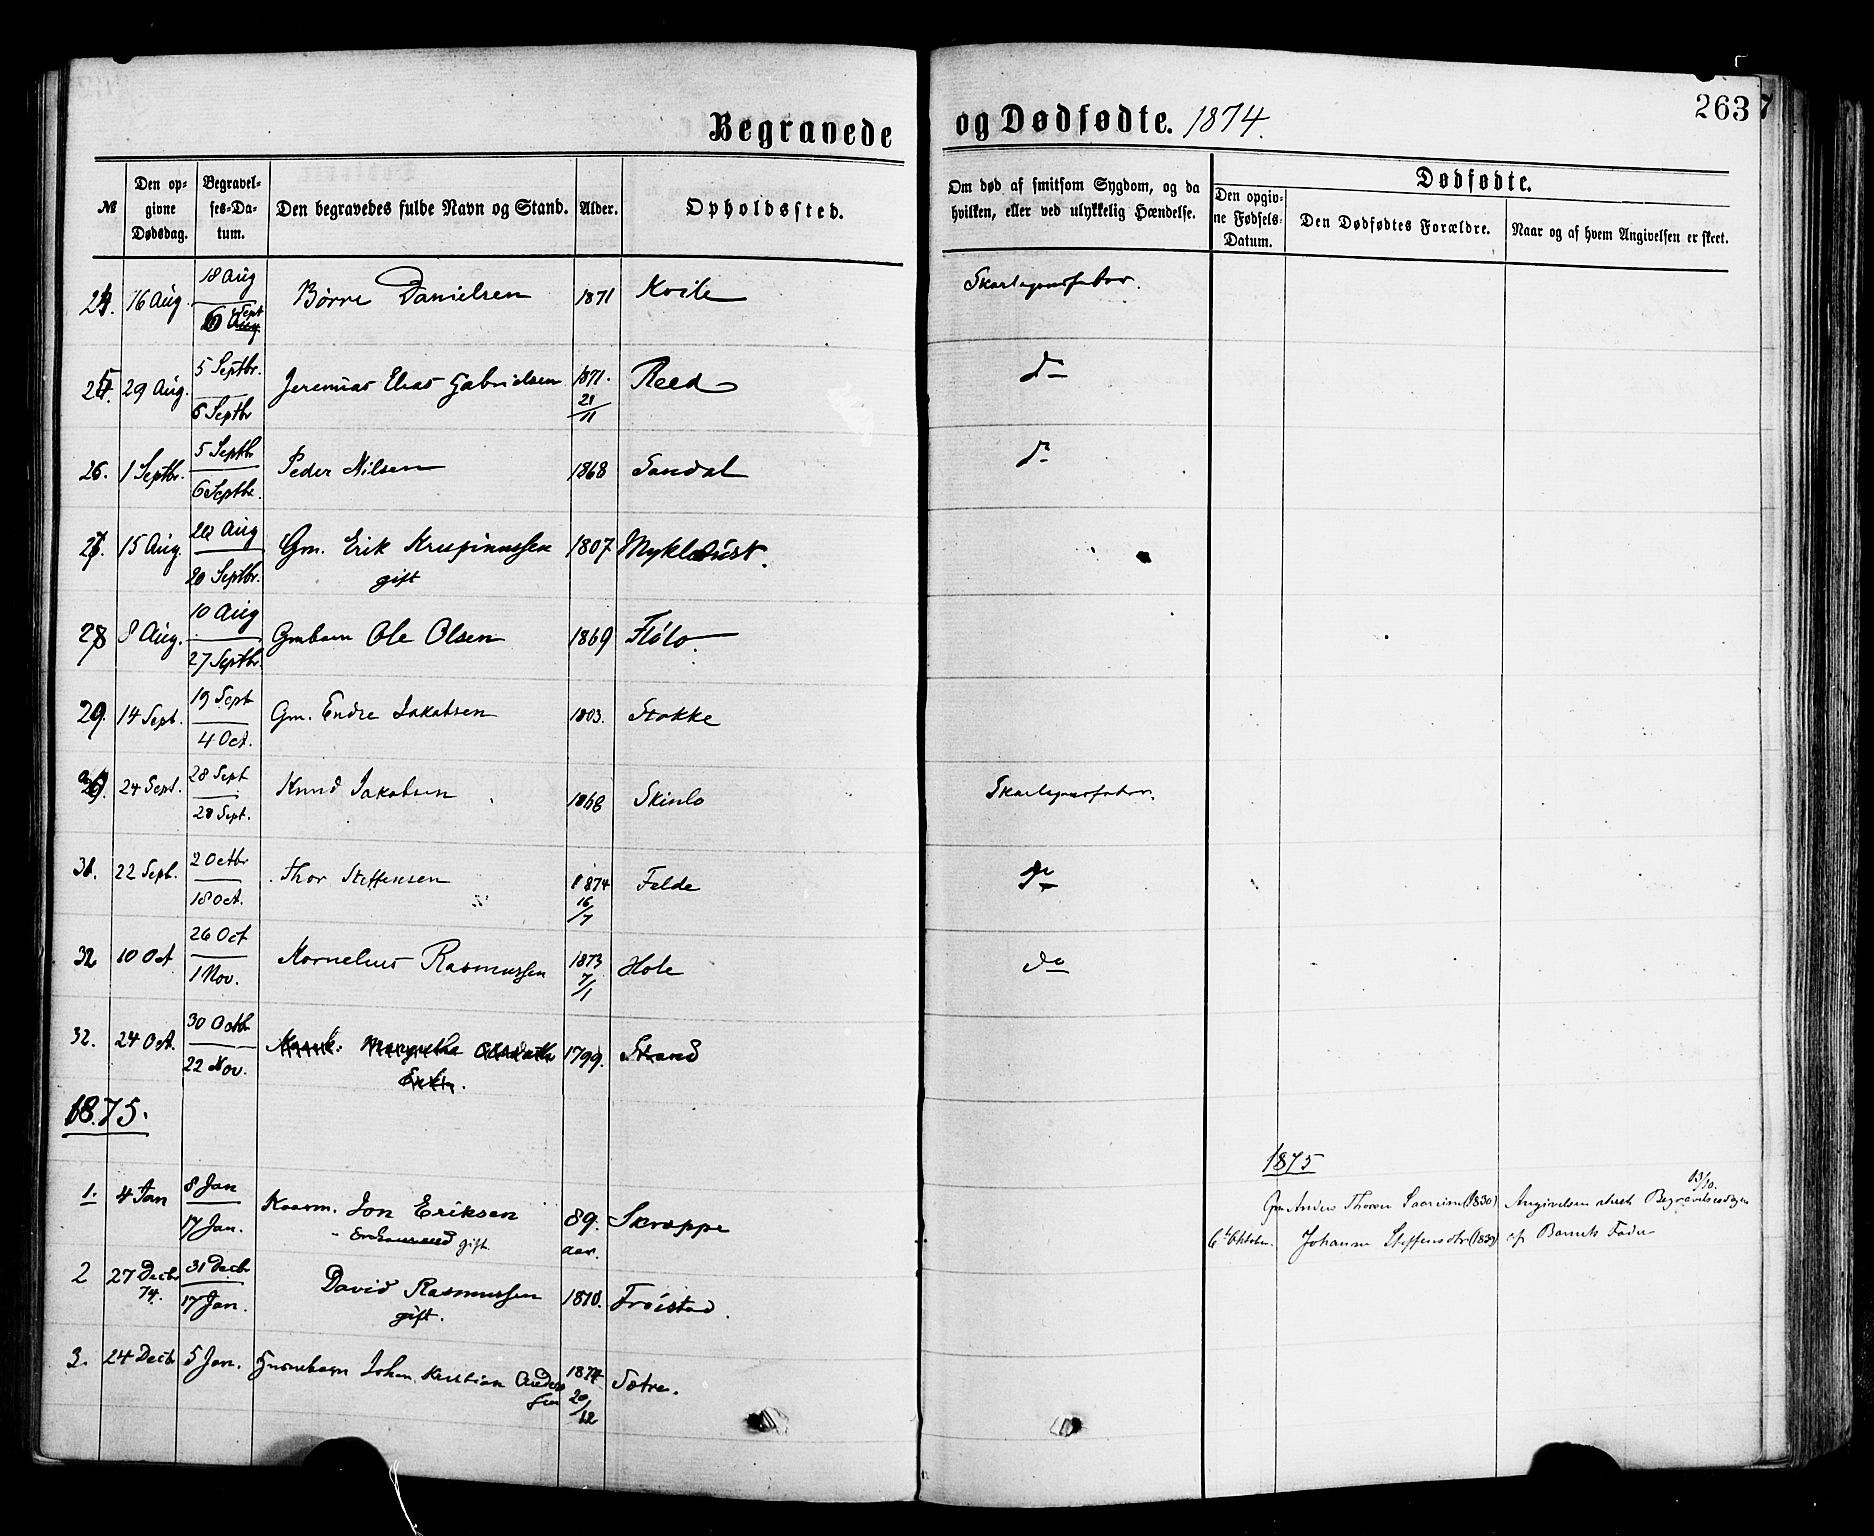 Begravede og Dødfødte. 1874.
263
№ Den opgivne Dødsdag. Begravelses-Datum. Den begravedes fulde Navn og Stand. Alder. Opholdssted. Om død af smitsom Sygdom, og da hvilken, eller ved ulykkelig Hændelse. Dødfødte. Den opgivne Fødsels-Datum. Den Dødfødtes Forældre. Naar og af hvem Angivelsen er skeet.
24. 16 Aug. 18 Aug / 6 Sept Børre Danielsen 1871 Kvile Skarlagensfeber.
25. 29 Aug. 5 Septbr. / 6 Septbr Jeremias Elias Gabrielsen 1871. 21/11 Reed do
26. 1 Septbr. 5 Septbr / 6 Septbr. Peder Nilsen 1868 Sandal do
27. 15 Aug. 20 Aug / 20 Septbr. Gm. Erik Krispinussen 1807 Myklebust.
gift
28 8 Aug. 10 Aug / 27 Septbr. Gmbarn Ole Olsen 1869 Flølo.
29. 14 Sept. 19 Sept / 4 Oct. Gm. Endre Jakobsen 1803. Stokke
30. 24 Sept. 28 Sept / 28 Sept. Knud Jakobsen 1868 Skinlo Skarlagensfeber.
31. 22 Sept. 2 Octbr / 18 Oct. Thor Steffensen 1874 16/7 Felde do
32 10 Oct 26 Oct / 1 Nov. Kornelius Rasmussen 1873 7/1 Hole do
32. 24 Oct. 30 Octbr / 22 Nov. Margrethe 1799. Strand
Enke.
1875.
1. 4 Jan 8 Jan / 17 Jan. Kaarm. Jon Eriksen 89. aar. Skrappe
gift.
2 27 Decbr 74. 31 Decbr / 17 Jan. David Rasmussen 1810. Frøistad.
gift.
3. 24 Decbr 5 Jan. Gmbarn Johan Kristian Andersen 1874 20/12 Sætre.
1875
13/10.
6te Oktober. Gm Anders Thoresen (1830) Angivelsen skeet Begravelsesdagen
Johanne Steffensdtr af Barnets Fader